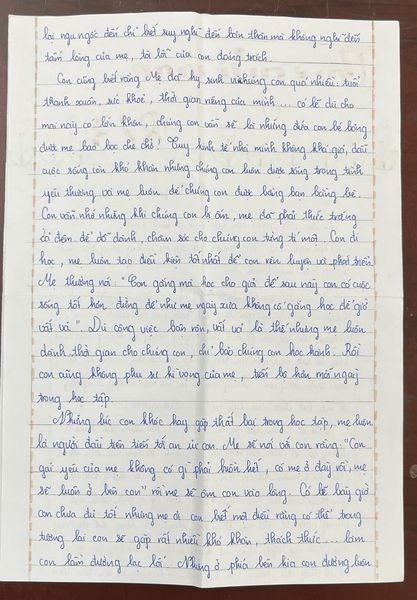 lại ngu ngốc đến chỉ biết suy nghĩ đến bản thân mà không nghĩ đến
tấm lòng của mẹ, tội lỗi của con đáng trách.
Con cũng biết rằng Mẹ đã hy sinh vì chúng con quá nhiều: tuổi
thanh xuân, sức khoẻ, thời gian riêng của mình... có lẽ dù cho
mai này có lớn khôn, chúng con vẫn sẽ là những đứa con bé bỏng
được mẹ bao bọc che chở! Tuy kinh tế nhà mình không khá giả, dẫu
cuộc sống còn khó khăn nhưng chúng con luôn được sống trong tình
yêu thương và mẹ luôn để chúng con được bằng bạn bằng bè.
Con vẫn nhớ những khi chúng con bị ốm, mẹ đã phải thức trắng
cả đêm để dỗ dành, chăm sóc cho chúng con từng tí một. Con đi
học, mẹ luôn tạo điều kiện tốt nhất để con rèn luyện và phát triển.
Mẹ thường nói: "Con gắng mà học cho giỏi để sau này con có cuộc
sống tốt hơn đừng để như mẹ ngày xưa không cố gắng học để giờ
vất vả". Dù công việc bận rộn, vất vả là thế nhưng mẹ luôn
dành thời gian cho chúng con, chỉ bảo chúng con học hành. Rồi
con cũng không phụ sự kì vọng của mẹ, tiến bộ hơn mỗi ngày
trong học tập.
Những lúc con khóc hay gặp thất bại trong học tập, mẹ luôn
là người đầu tiên tiến tới an ủi con. Mẹ sẽ nói với con rằng: "Con
gái yêu của mẹ không có gì phải buồn hết, có mẹ ở đây rồi, mẹ
sẽ luôn ở bên con" rồi mẹ sẽ ôm con vào lòng. Có lẽ bây giờ
con chưa đủ tốt nhưng mẹ ơi con biết một điều rằng có thể trong
tương lai con sẽ gặp rất nhiều khó khăn, thách thức... làm
con lầm đường lạc lối. Nhưng ở phía bên kia con đường luôn